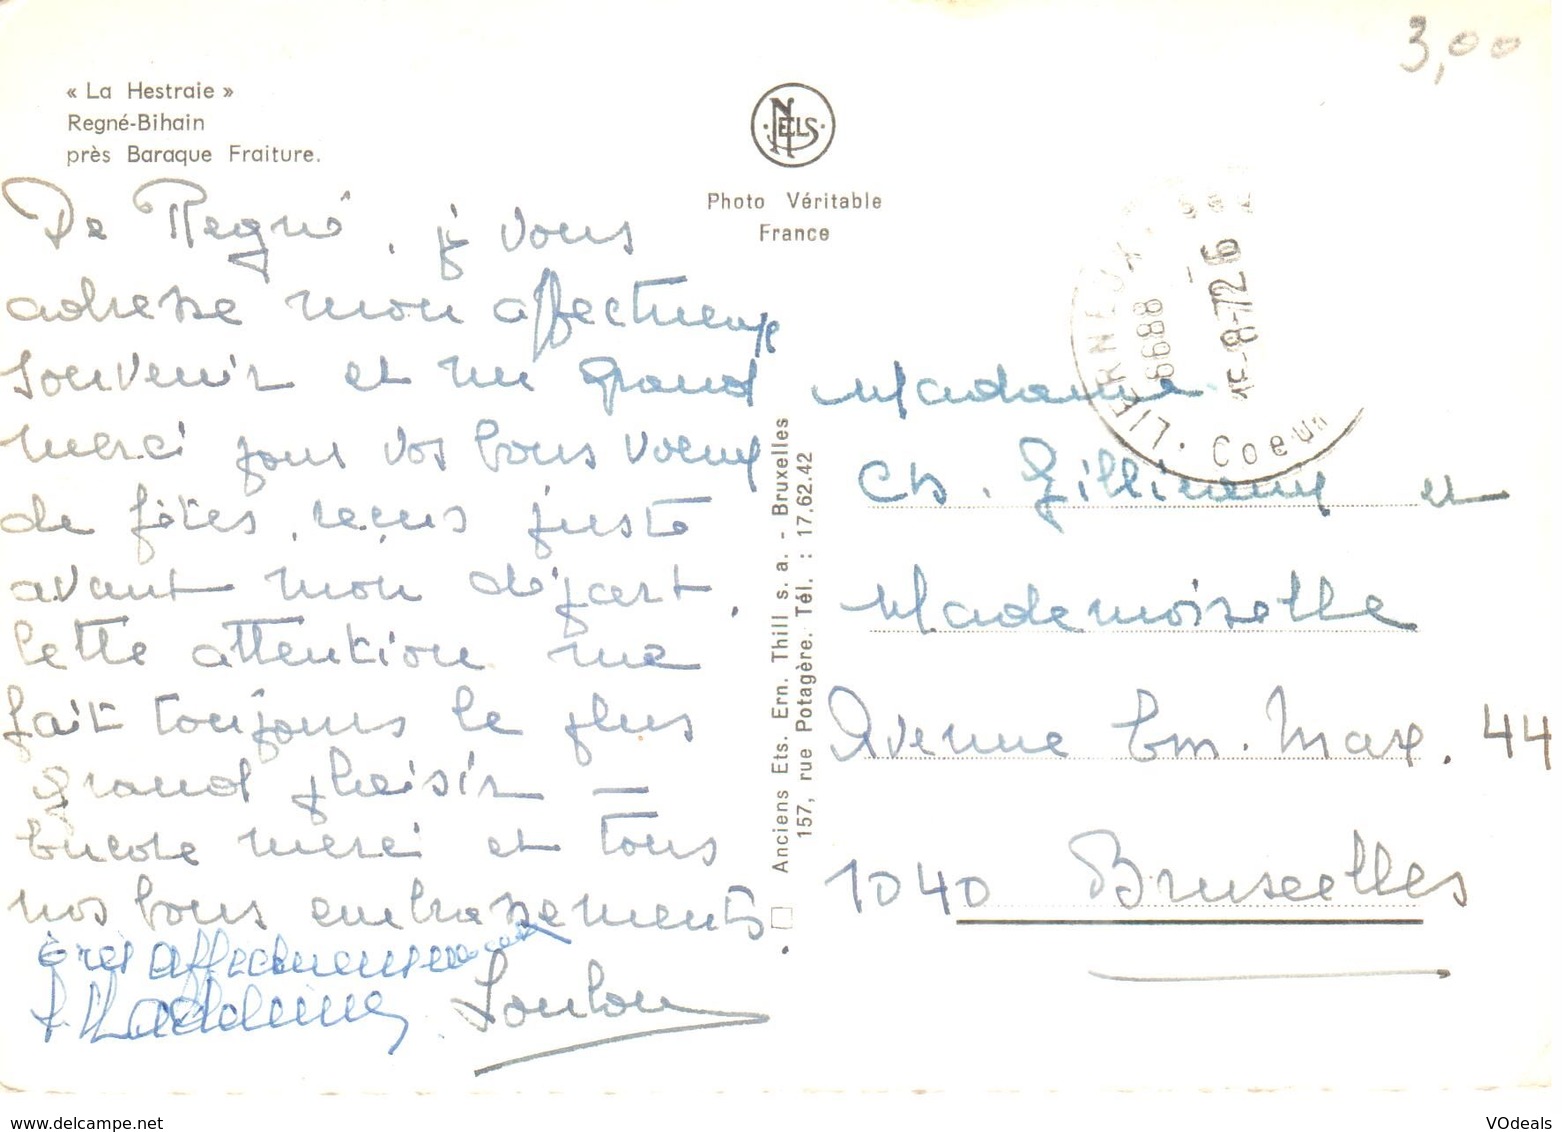 « La Hestraie »
Regné-Bihain
près Baraque Fraiture.
De Regné, je vous
adresse mon affectueux
souvenir et un grand
merci pour vos bons voeux
de fêtes, reçus juste
avant mon départ,
Cette attention me
fait toujours le plus
grand plaisir —
Encore merci et tous
nos bons embrassements
Très affectueusement
Loulou
NELS
Photo Véritable
France
Anciens Ets. Ern. Thill s. a. - Bruxelles
157, rue Potagère. Tél. : 17.62.42
3,00
LIERNEUX
6688
15-8-72 - 6
Coeur
Madame
Ch. et
Mademoiselle
Avenue Em. Max. 44
1040 Bruxelles
www.delcampe.net
VOdeals